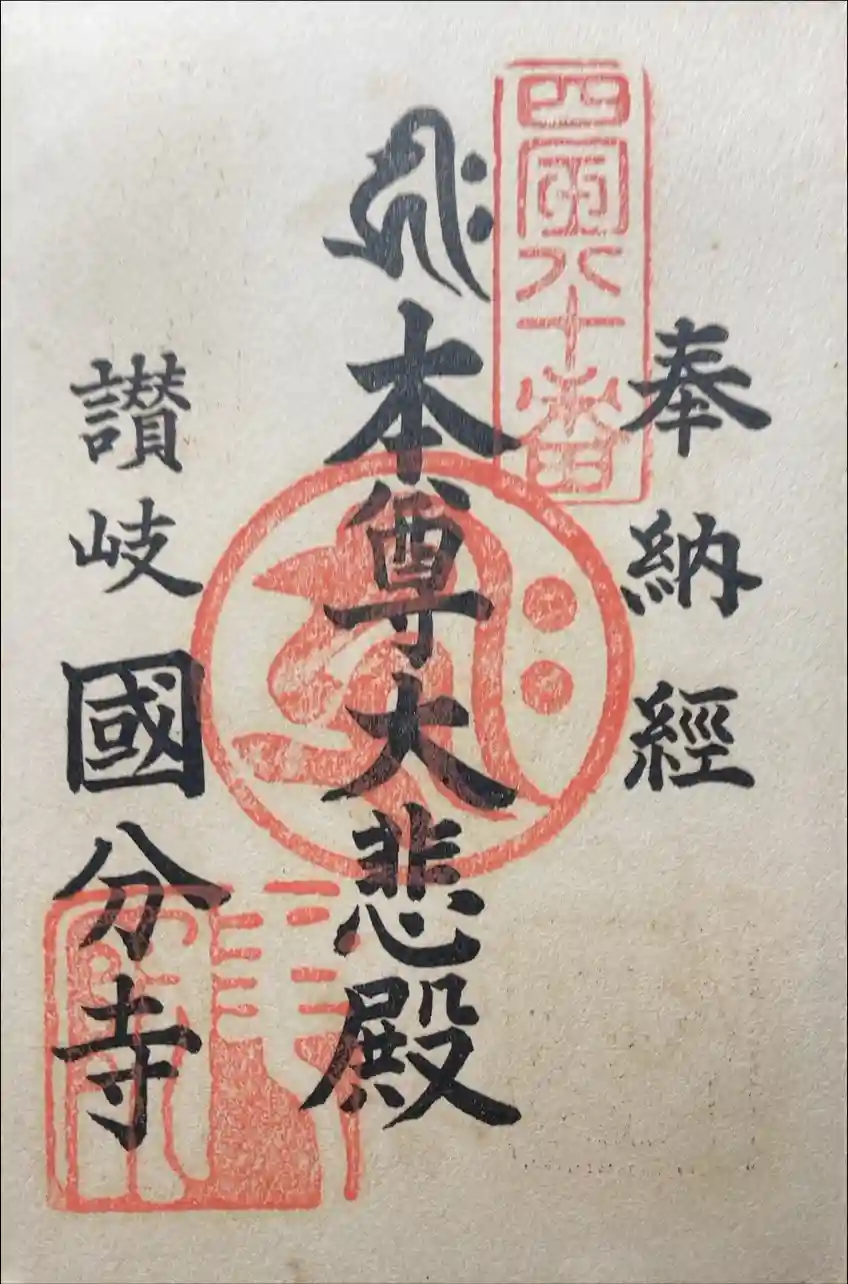 奉納經
四國八十番
𑖮𑖿𑖨𑖱𑖾 本尊大悲殿
讃岐 國分寺